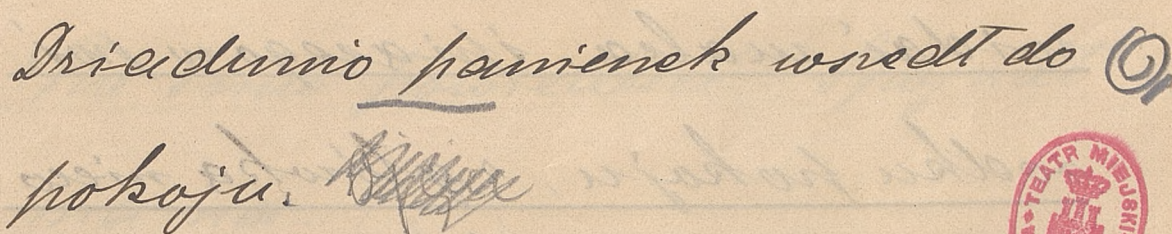 Dziadunio panienek wszedł do
pokoju.
TEATR MIEJSKI